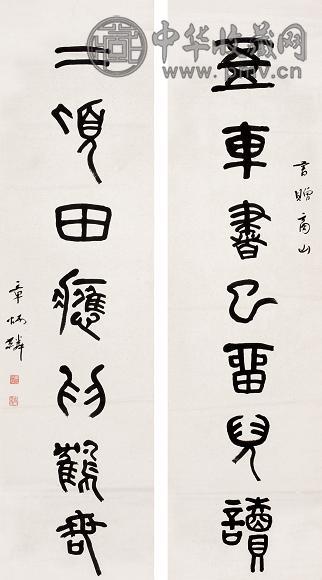 中华收藏网
五車書已留兒讀
書贈商山
二頃田應為鶴謀
章炳麟